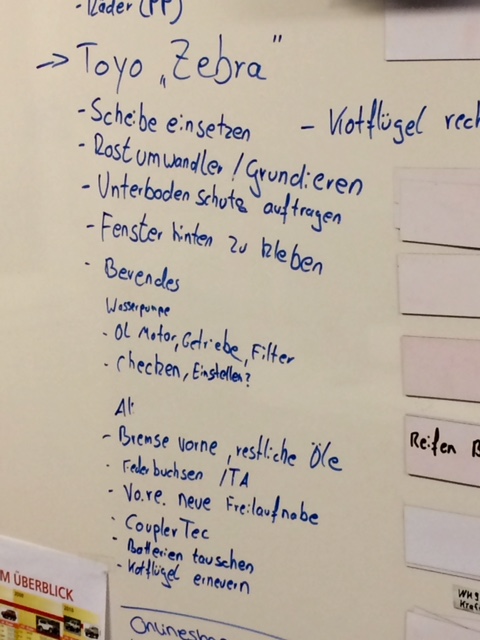 - Räder (PP)
→ Toyo „Zebra"
- Scheibe einsetzen - Kotflügel rech
- Rostumwandler / Grundieren
- Unterbodenschutz auftragen
- Fenster hinten zu kleben
- Bevendes
Wasserpumpe
- Öl Motor, Getriebe, Filter
- Checken, Einstellen?
Ali
- Bremse vorne, restliche Öle
- Federbuchsen / TA
- Vo.re. neue Freilaufnabe
- CouplerTec
- Batterien tauschen
- Kotflügel erneuern
Reifen B
M ÜBERBLICK